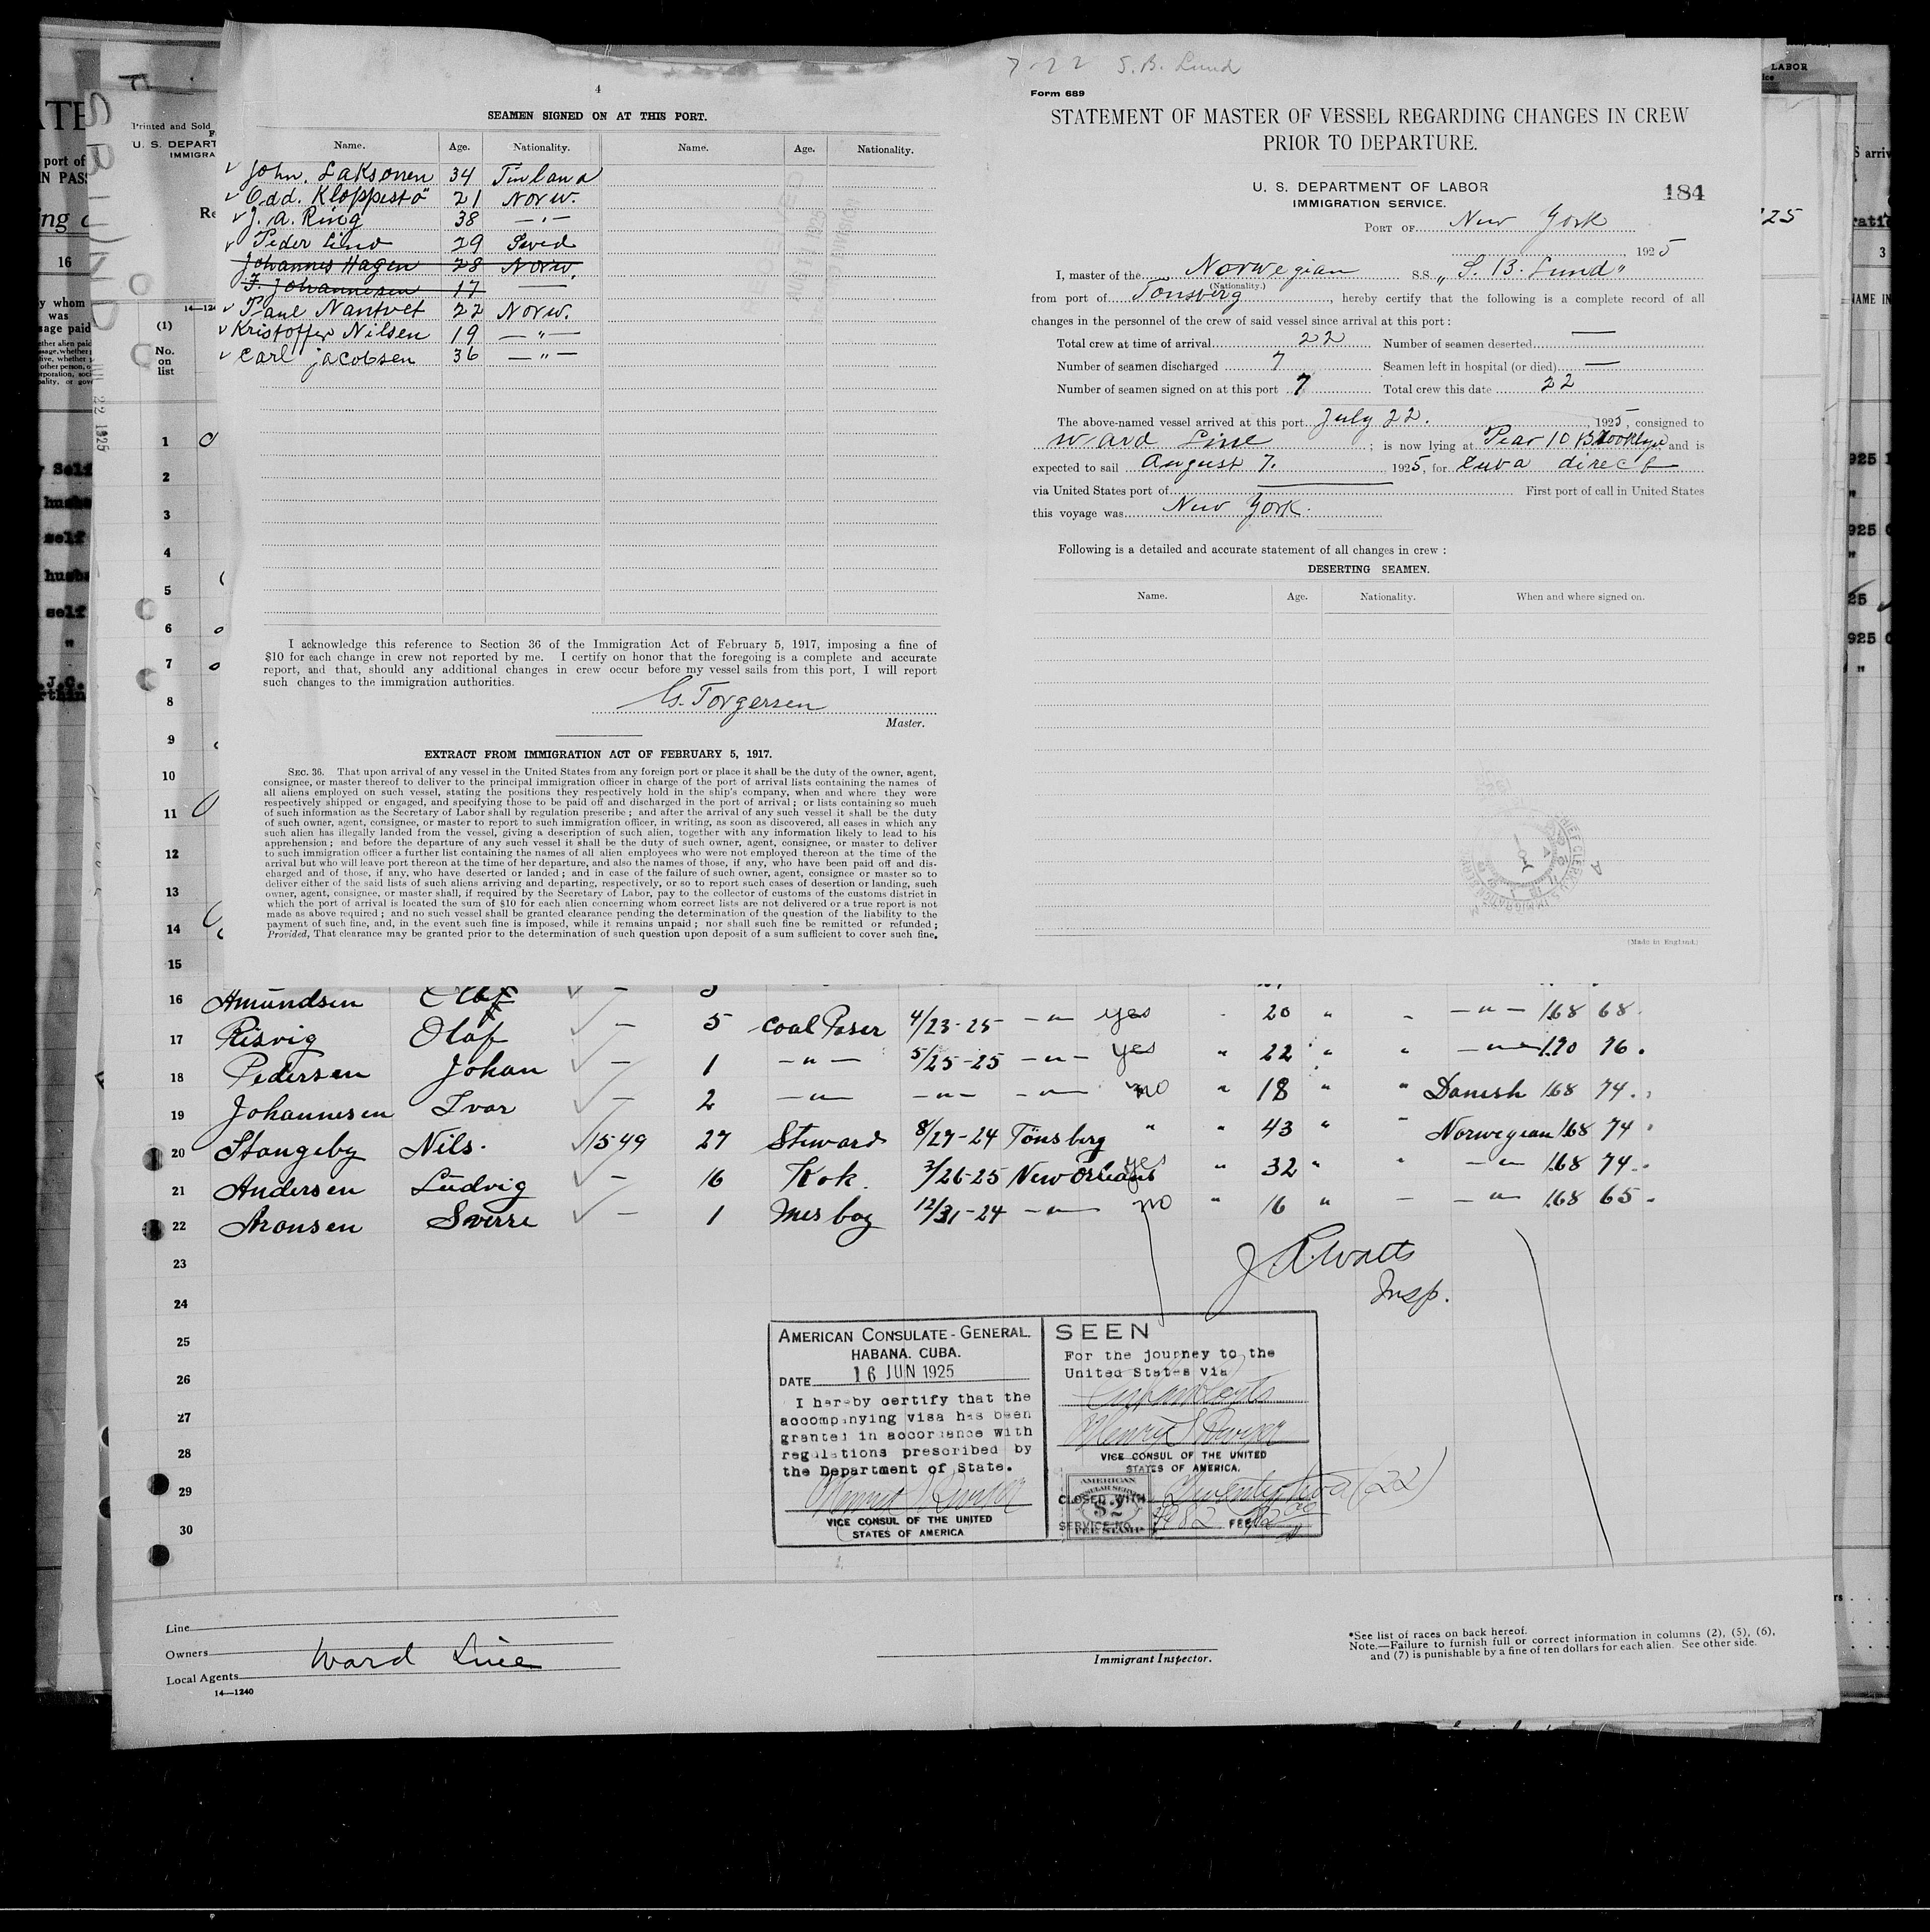 7-22 S. B. Lund
4
SEAMEN SIGNED ON AT THIS PORT.
Name. Age. Nationality. Name. Age. Nationality.
✓ John. Laksonen 34 Finland
✓ Odd. Kloppestö 21 Norw.
✓ J. A. Ring 38 — " —
✓ Peder Lind 29 Swed
Johannes Hagen 28 Norw.
F. Johannesen 17 —
✓ Paul Nantvet 22 Norw.
✓ Kristoffer Nilsen 19 — " —
✓ Carl jacobsen 36 — " —
I acknowledge this reference to Section 36 of the Immigration Act of February 5, 1917, imposing a fine of
$10 for each change in crew not reported by me. I certify on honor that the foregoing is a complete and accurate
report, and that, should any additional changes in crew occur before my vessel sails from this port, I will report
such changes to the immigration authorities.
G. Torgersen
Master.
EXTRACT FROM IMMIGRATION ACT OF FEBRUARY 5, 1917.
SEC. 36. That upon arrival of any vessel in the United States from any foreign port or place it shall be the duty of the owner, agent,
consignee, or master thereof to deliver to the principal immigration officer in charge of the port of arrival lists containing the names of
all aliens employed on such vessel, stating the positions they respectively hold in the ship's company, when and where they were
respectively shipped or engaged, and specifying those to be paid off and discharged in the port of arrival; or lists containing so much
of such information as the Secretary of Labor shall by regulation prescribe; and after the arrival of any such vessel it shall be the duty
of such owner, agent, consignee, or master to report to such immigration officer, in writing, as soon as discovered, all cases in which any
such alien has illegally landed from the vessel, giving a description of such alien, together with any information likely to lead to his
apprehension; and before the departure of any such vessel it shall be the duty of such owner, agent, consignee, or master to deliver
to such immigration officer a further list containing the names of all alien employees who were not employed thereon at the time of the
arrival but who will leave port thereon at the time of her departure, and also the names of those, if any, who have been paid off and dis-
charged and of those, if any, who have deserted or landed; and in case of the failure of such owner, agent, consignee or master so to
deliver either of the said lists of such aliens arriving and departing, respectively, or so to report such cases of desertion or landing, such
owner, agent, consignee, or master shall, if required by the Secretary of Labor, pay to the collector of customs of the customs district in
which the port of arrival is located the sum of $10 for each alien concerning whom correct lists are not delivered or a true report is not
made as above required; and no such vessel shall be granted clearance pending the determination of the question of the liability to the
payment of such fine, and, in the event such fine is imposed, while it remains unpaid; nor shall such fine be remitted or refunded;
Provided, That clearance may be granted prior to the determination of such question upon deposit of a sum sufficient to cover such fine.
Form 689
STATEMENT OF MASTER OF VESSEL REGARDING CHANGES IN CREW
PRIOR TO DEPARTURE.
U. S. DEPARTMENT OF LABOR
IMMIGRATION SERVICE.
184
PORT OF New York
1925
I, master of the Norwegian S.S. "S. B. Lund"
(Nationality.)
from port of Tonsberg, hereby certify that the following is a complete record of all
changes in the personnel of the crew of said vessel since arrival at this port:
Total crew at time of arrival 22 Number of seamen deserted —
Number of seamen discharged 7 Seamen left in hospital (or died) —
Number of seamen signed on at this port 7 Total crew this date 22
The above-named vessel arrived at this port July 22. 1925, consigned to
Ward Line; is now lying at Pear 10 Brooklyn, and is
expected to sail August 7. 1925, for Cuva direct
via United States port of — First port of call in United States
this voyage was New York.
Following is a detailed and accurate statement of all changes in crew:
DESERTING SEAMEN.
Name. Age. Nationality. When and where signed on.
(Made in England.)
Printed and Sold
U. S. DEPART
IMMIGRA
14—124
(1)
No.
on
list
S B LUND
JUL 22 1925
1
2
3
4
5
6
7
8
9
10
11
12
13
14
15
16 Amundsen Olaf ✓ —
17 Risvig Olaf ✓ — 5 Coal Paser 4/23-25 — " — yes 20 " - — " — 168 68
18 Pedersen Johan ✓ — 1 — " — 5/25-25 — " — yes " 22 " " — " — 170 76
19 Johannesen Ivar ✓ — 2 — " — — " — — " — no " 18 " " Danish 168 74
20 Stangeby Nils. ✓ 1549 27 Steward 8/27-24 Tönsberg " " 43 " " Norwegean 168 74
21 Andersen Ludvig ✓ — 16 Kok. 3/26-25 New Orleans yes " 32 " " — " — 168 74
22 Aronsen Sverre ✓ — 1 Mes boy 12/31-24 — " — no " 16 " - — " — 168 65
23
24
25
26
27
28
29
30
J R Watts
Insp.
AMERICAN CONSULATE-GENERAL.
HABANA. CUBA.
DATE 16 JUN 1925
I hereby certify that the
accompanying visa has been
granted in accordance with
regulations prescribed by
the Department of State.
VICE CONSUL OF THE UNITED
STATES OF AMERICA
SEEN
For the journey to the
United States via
VICE CONSUL OF THE UNITED
STATES OF AMERICA.
CLOSED WITH Twenty two (22)
SERVICE NO. FEE
AMERICAN
CONSULAR SERVICE
$2
FEE STAMP
Line
Owners
Local Agents Ward Line
14—1240
Immigrant Inspector.
*See list of races on back hereof.
Note.—Failure to furnish full or correct information in columns (2), (5), (6),
and (7) is punishable by a fine of ten dollars for each alien. See other side.